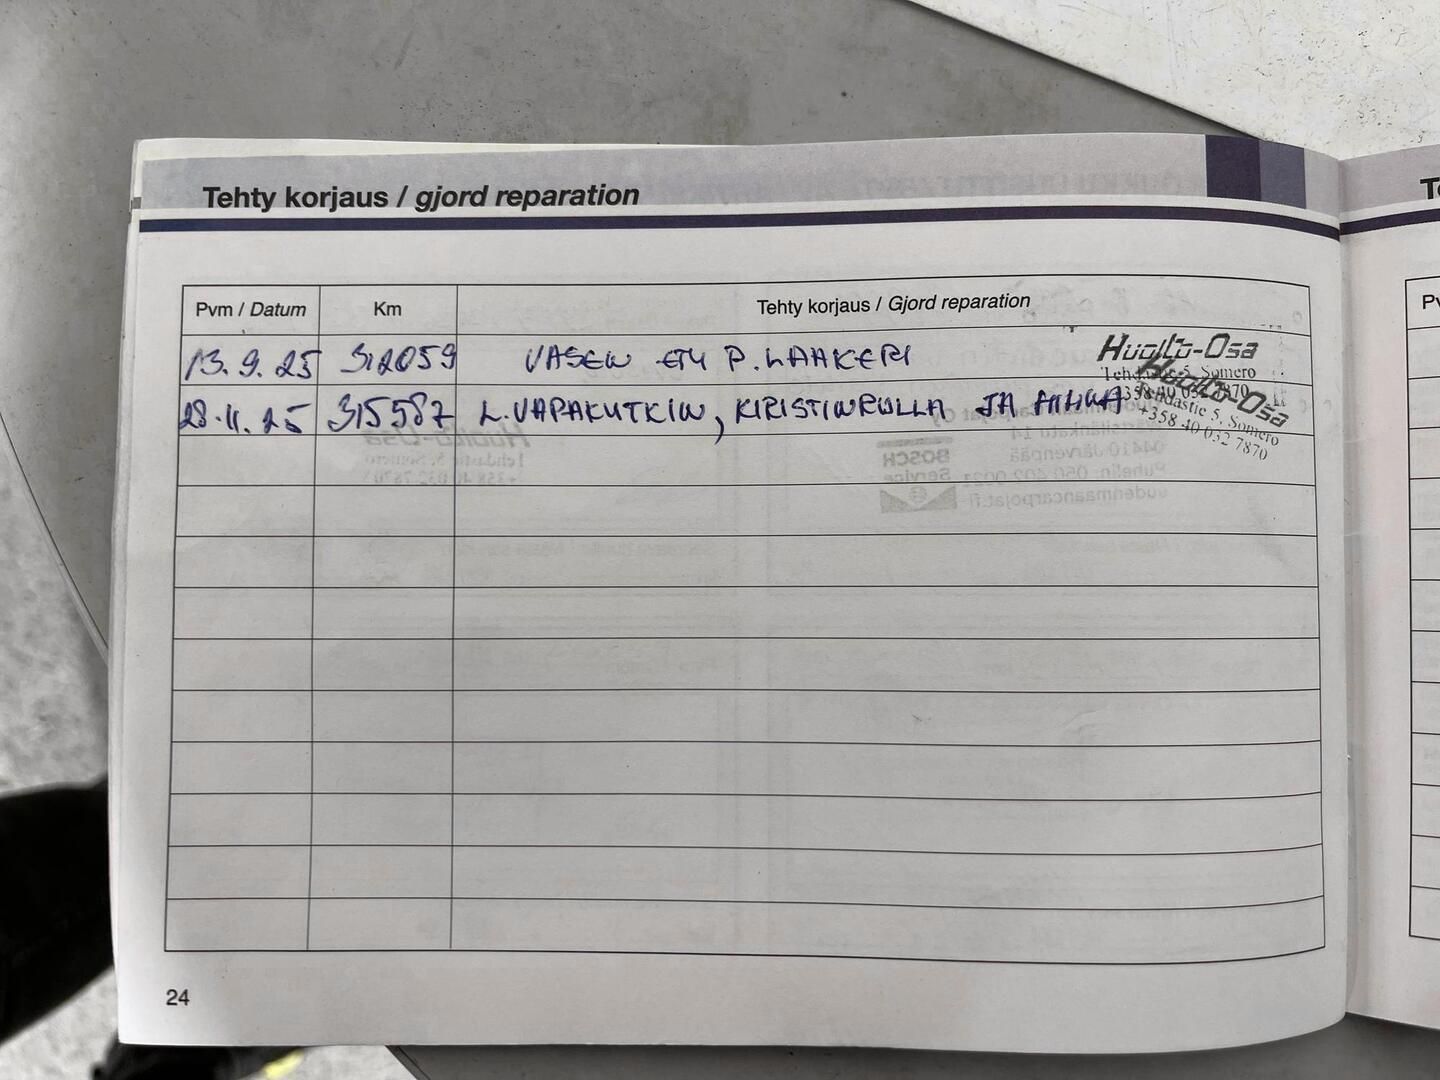 Tehty korjaus / gjord reparation
Pvm / Datum Km Tehty korjaus / Gjord reparation
13.9.25 312059 VASEN ETU P.LAAKERI
Huolto-Osa
Tehdastie 5, Somero
28.11.25 315587 L.VAPAKYTKIN, KIRISTINRULLA JA HIHNA
Huolto-Osa
Tehdastie 5, Somero
+358 40 032 7870
24